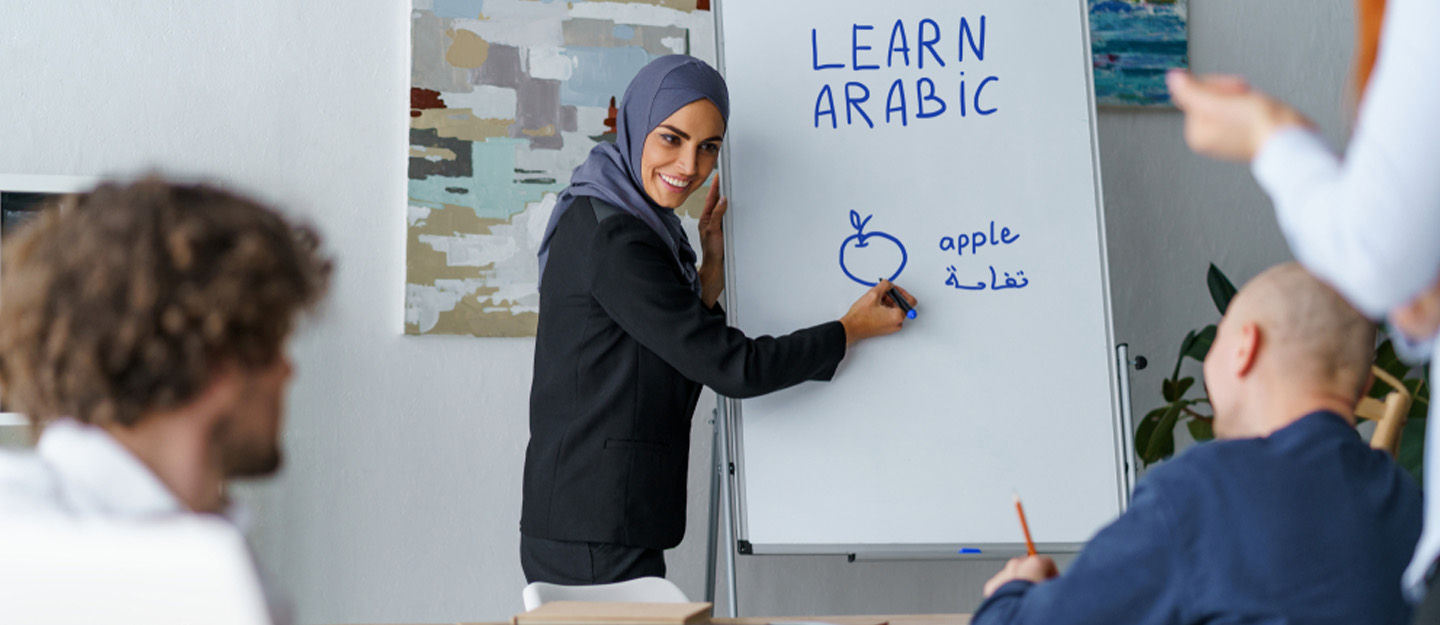 LEARN
ARABIC
apple
تفاحة